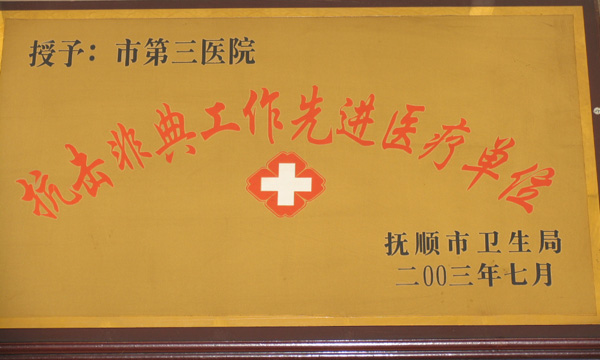 授予：市第三医院
抗击非典工作先进医疗单位
抚顺市卫生局
二00三年七月